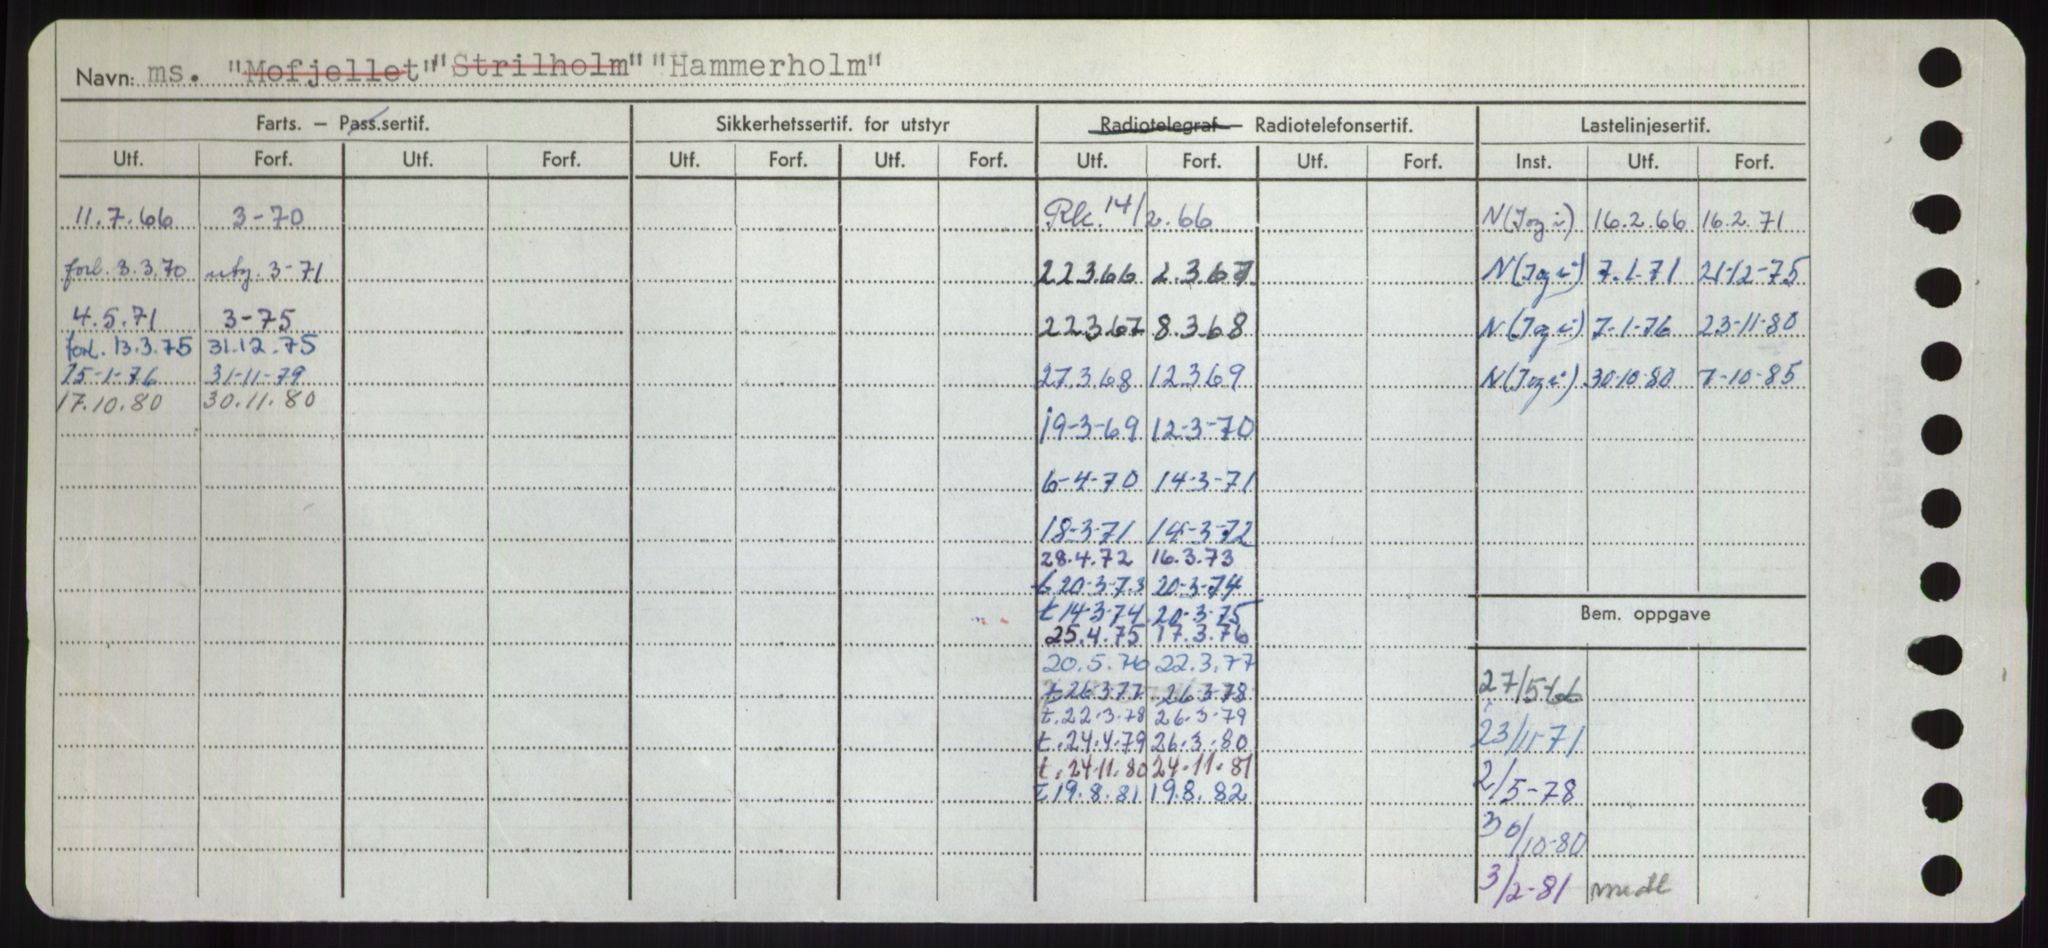 Navn: ms. "Mofjellet" "Strilholm" "Hammerholm"
Farts. — Pass.sertif. Sikkerhetssertif. for utstyr Radiotelegraf — Radiotelefonsertif. Lastelinjesertif.
Utf. Forf. Utf. Forf. Utf. Forf. Utf. Forf. Utf. Forf. Utf. Forf. Inst. Utf. Forf.
11.7.66 3-70 Rk. 14/2.66 N(Jog i) 16.2.66 16.2.71
forl. 3.3.70 utg. 3-71 22.3.66 2.3.67 N(Jog i) 7.1-71 21-12-75
4.5.71 3-75 22.3.67 8.3.68 N(Jog i) 7-1-76 23-11-80
forl. 13.3.75 31.12.75
15-1-76 31-11-79 27.3.68 12.3.69 N(Jog i) 30-10-80 7-10-85
17.10.80 30.11.80
19-3-69 12-3-70
6-4-70 14-3-71
18-3-71 14-3-72
28.4.72 16.3.73
t 20-3-73 20-3-74
t 14-3-74 20-3-75
Bem. oppgave
25.4.75 17.3.76
20.5.76 22.3.77
t 26-3-77 26-3-78 27/5-66
t. 22.3.78 26.3.79
t. 24.4.79 26.3.80 23/11-71
t. 24.11.80 24.11.81
t 19.8.81 19.8.82 2/5-78
30/10-80
3/2-81 medl